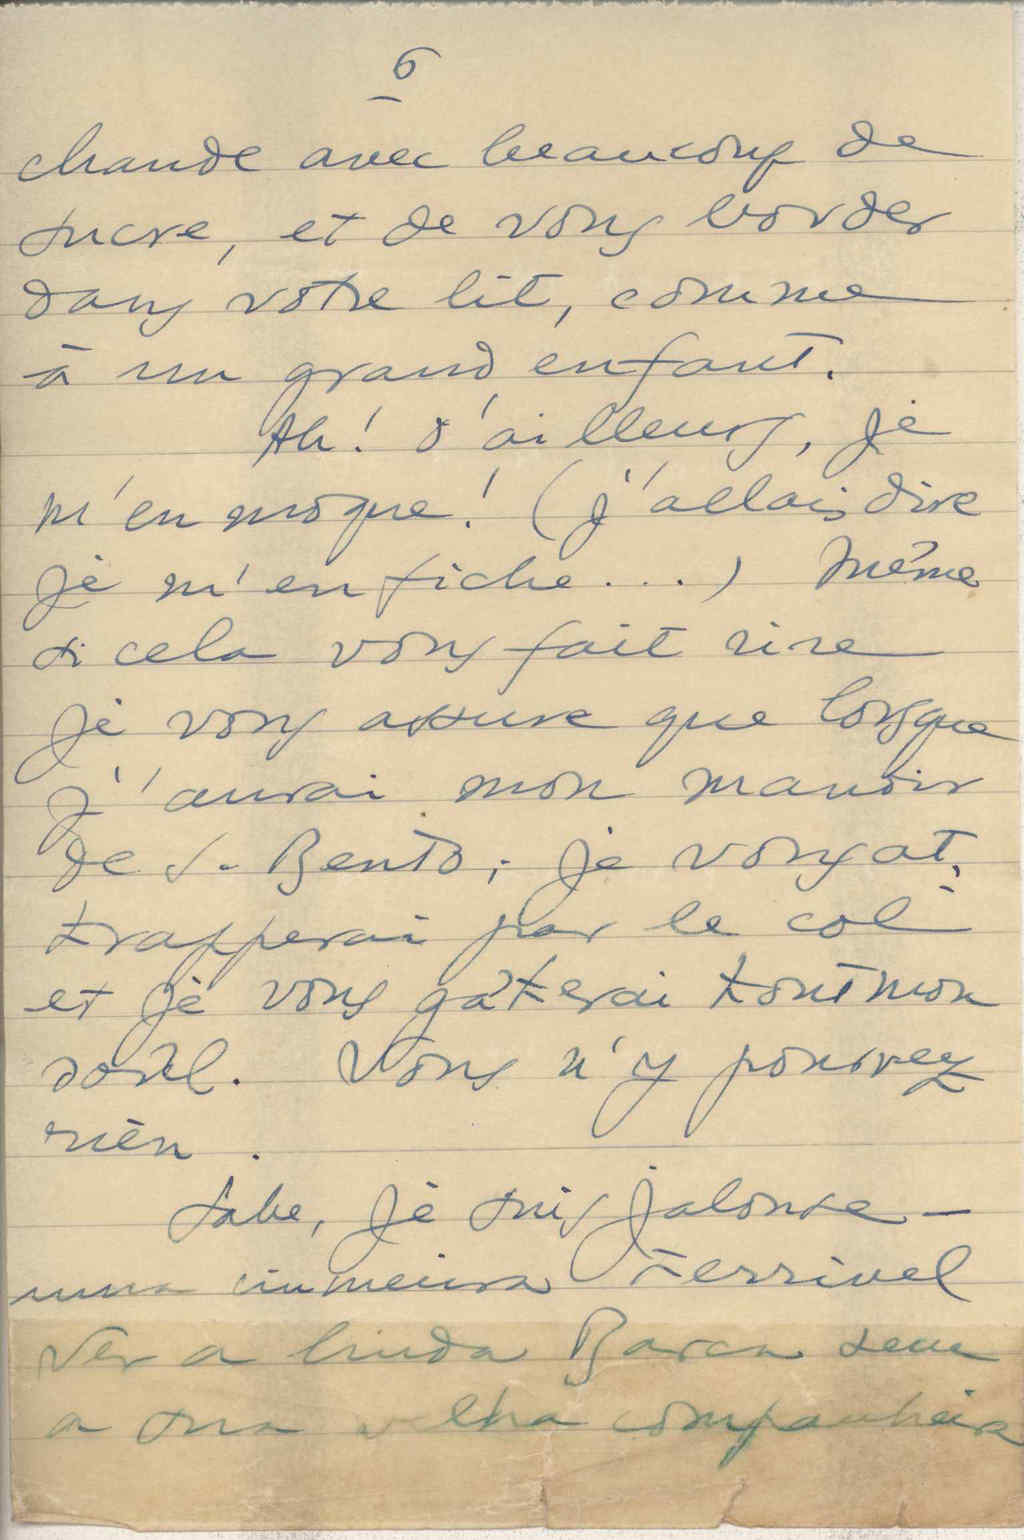 6
chaude avec beaucoup de
sucre, et de vous border
dans votre lit, comme
à un grand enfant.
Ah! d'ailleurs, je
m'en moque! (j'allais dire
je m'en fiche...) Même
si cela vous fait rire
je vous assure que lorsque
j'aurai mon manoir
de S. Bento, je vous at-
trapperai par le col
et je vous gâterai tout mon
soûl. Vous n'y pourrez
rien.
Sabe, je suis jalouse -
uma ciumeira terrivel
Ver a linda Barca sem
a sua velha companheira